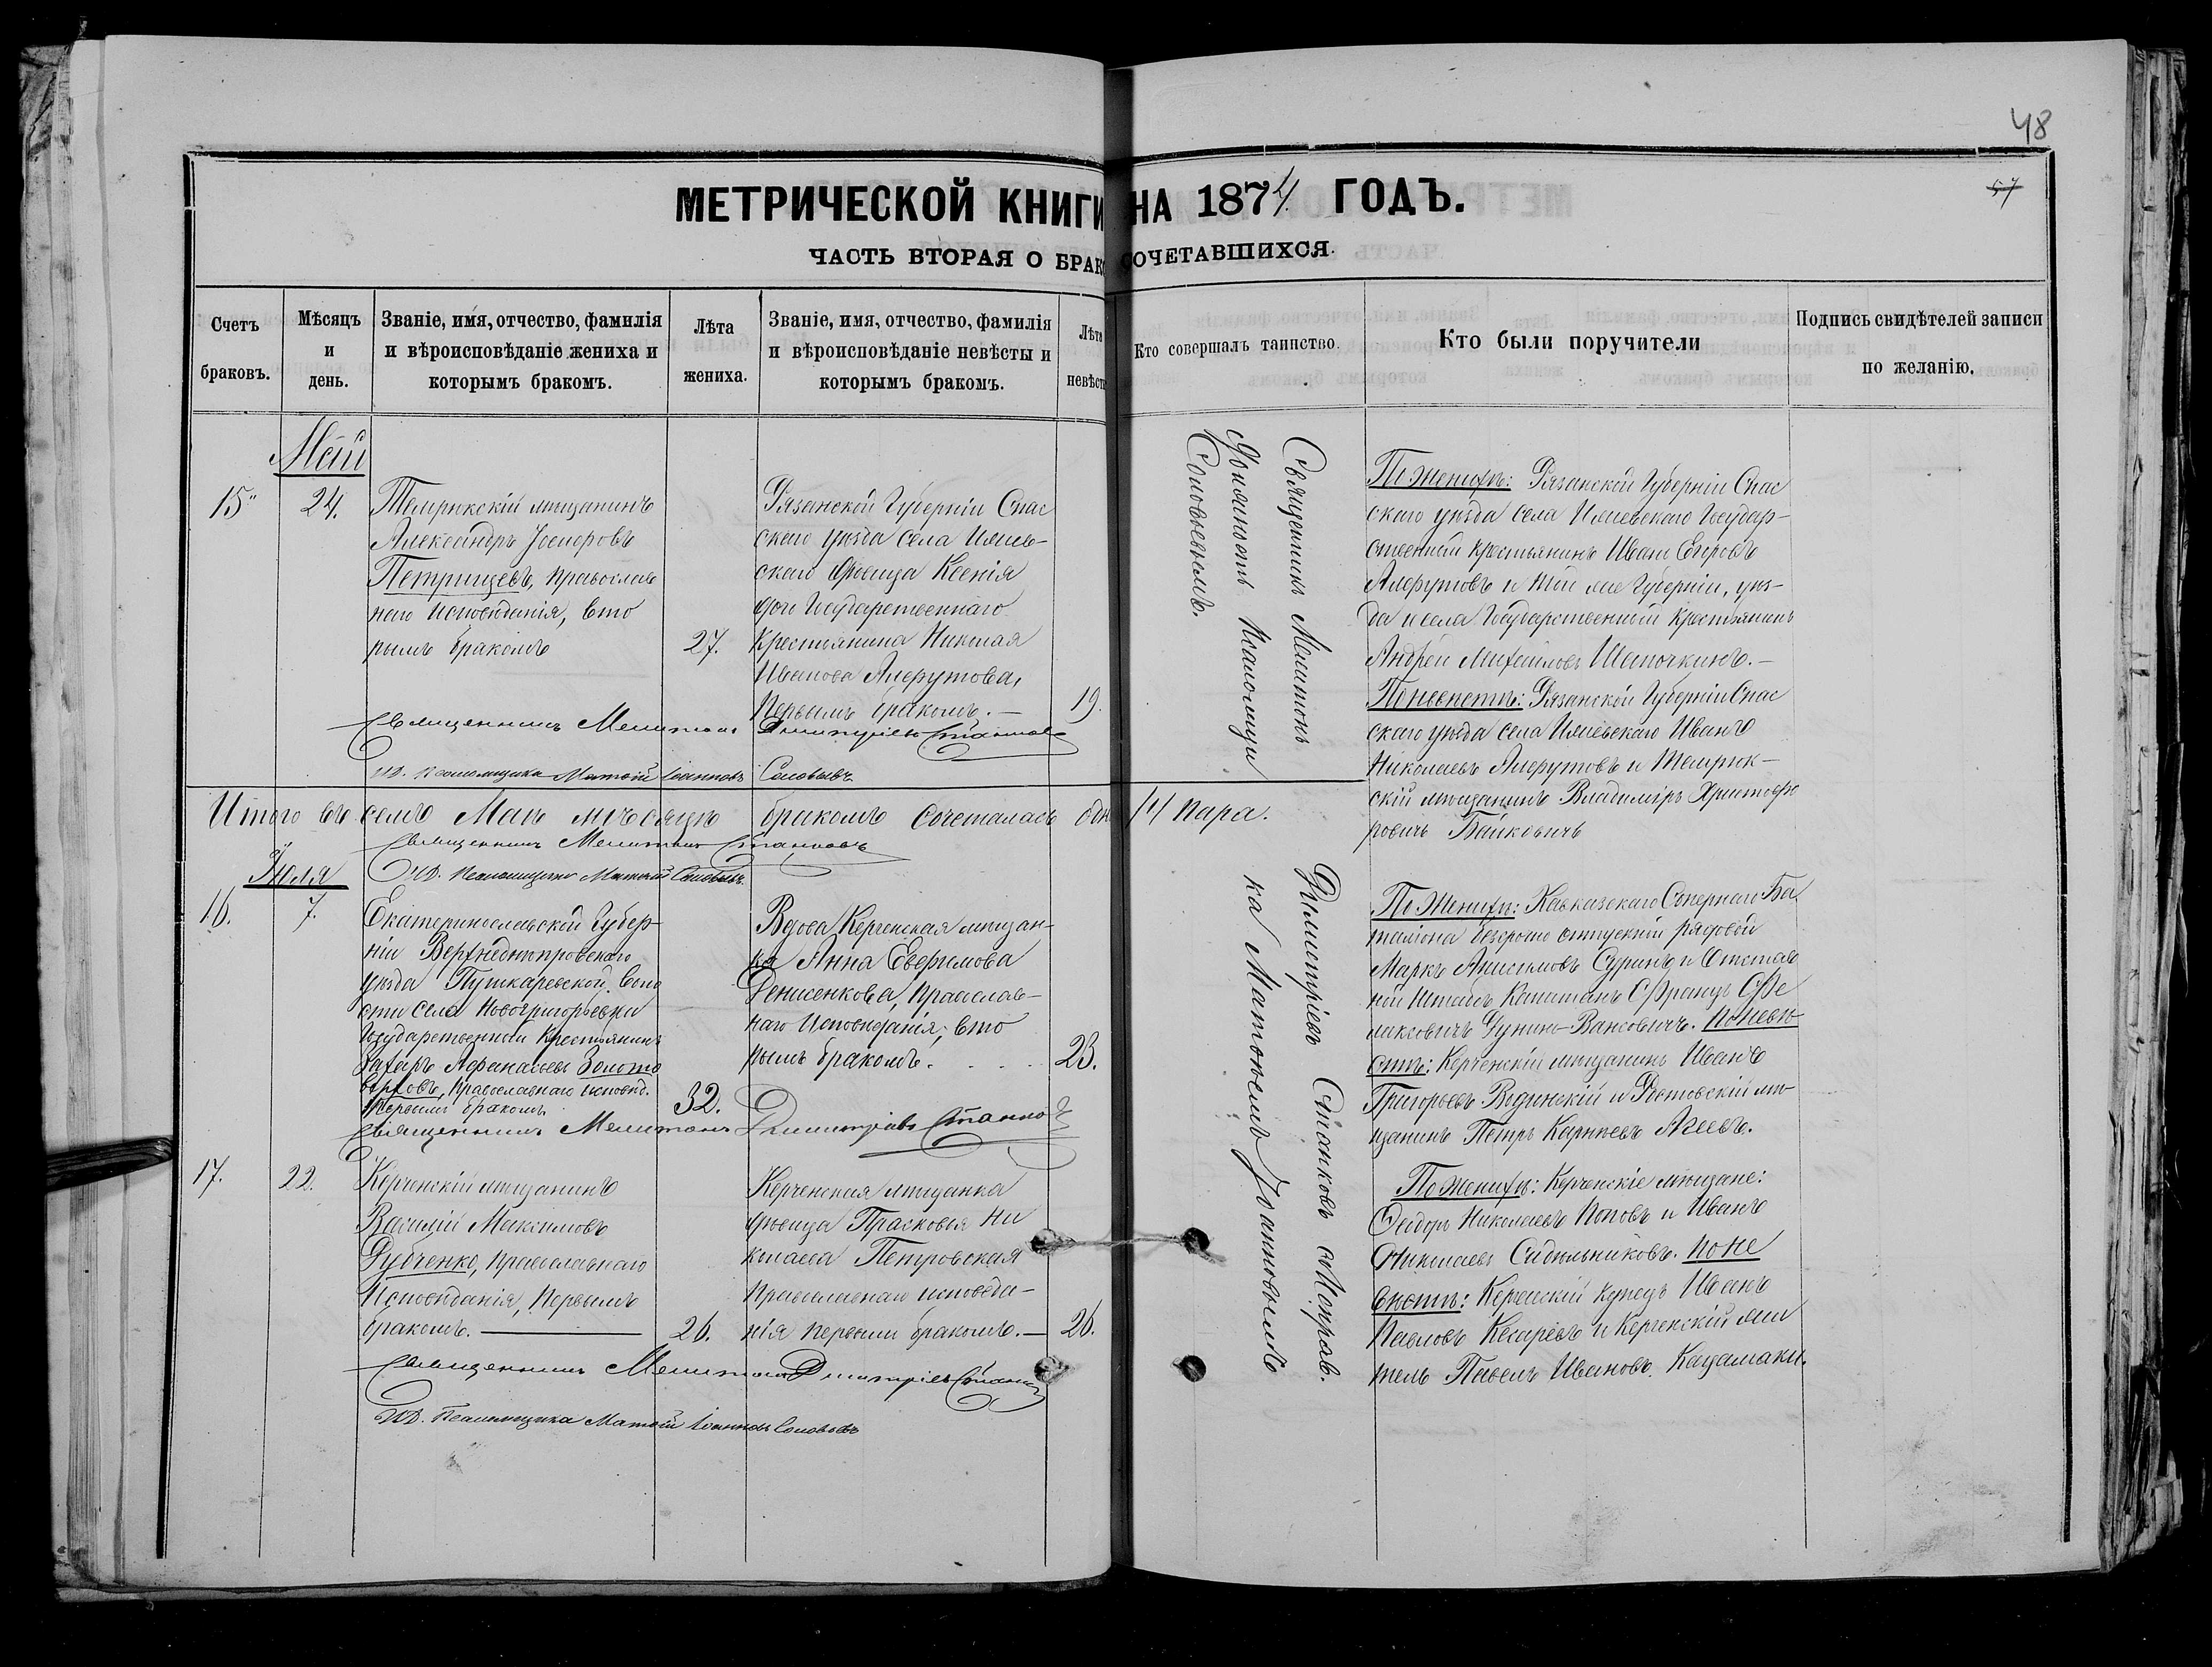 48
57
МЕТРИЧЕСКОЙ КНИГИ НА 1874 ГОДЪ.
ЧАСТЬ ВТОРАЯ О БРАКОСОЧЕТАВШИХСЯ.
Счетъ браковъ.
Мѣсяцъ и день.
Званіе, имя, отчество, фамилія
и вѣроисповѣданіе жениха и
которымъ бракомъ.
Лѣта жениха.
Званіе, имя, отчество, фамилія
и вѣроисповѣданіе невѣсты и
которымъ бракомъ.
Лѣта невѣсты
Кто совершалъ таинство.
Кто были поручители
Подпись свидѣтелей записи
по желанію.
Май
15
24.
Темрюкскій мѣщанинъ
Александръ
Петрищевъ, православ
наго исповѣданія, вто
рымъ бракомъ
27.
Рязанской Губерніи Спас
скаго уѣзда села
скаго дѣвица Ксенія
дочь Государственнаго
крестьянина Николая
Иванова Алфутова,
первымъ бракомъ. —
19.
Священникъ Мелитонъ
Псаломщи
Соловьевымъ.
По женихѣ: Рязанской Губерніи Спас
скаго уѣзда села Государ-
ственный крестьянинъ Иванъ Егоровъ
Алфутовъ и той же Губерніи, уѣз-
да и села Государственный крестьянинъ
Андрей Михайловъ Шапочкинъ. —
По невѣстѣ: Рязанской Губерніи Спас
скаго уѣзда села Иванъ
Николаевъ Алфутовъ и Темрюк-
скій мѣщанинъ Владиміръ Христофо
ровичъ Байковичъ
Священникъ Мелитонъ Димитріевъ Станковъ
И.Д. Псаломщика Матвѣй Іоанновъ Соловьевъ
Итого въ семъ Маѣ мѣсяцѣ бракомъ сочеталась одна /1/ пара.
Священникъ Мелитонъ Станковъ
И.Д. Псаломщика Матвѣй Соловьевъ.
Іюля
16.
7.
Екатеринославской Губер-
ніи Верхнеднѣпровскаго
уѣзда Пушкаревской воло
сти села Новогригорьевки
Государственный крестьянинъ
Захаръ Афанасьевъ Золото
верховъ, православнаго исповѣд.
первымъ бракомъ
32.
Вдова Керченская мѣщан-
ка Анна Евфимова
Денисенкова, православ-
наго исповѣданія; вто
рымъ бракомъ.
23.
Димитріевъ Станковъ
ка Матѳеемъ Іоанновымъ
По женихѣ: Кавказскаго Сапернаго Ба
таліона безсрочно отпускной рядовой
Маркъ Анисимовъ Суринъ и Отстав
ной Штабсъ Капитанъ Францъ Фе
ликсовичъ Дунинъ-Вансовичъ. По невѣ
стѣ: Керченскій мѣщанинъ Иванъ
Григорьевъ и Ростовскій мѣ-
щанинъ Петръ Карпѣевъ Агеевъ.
Священникъ Мелитонъ Димитріевъ Станковъ
17.
22.
Керченскій мѣщанинъ
Василій Максимовъ
Дубченко, православнаго
исповѣданія, первымъ
бракомъ. —
26.
Керченская мѣщанка
дѣвица Прасковья Ни
колаева Петровская
православнаго исповѣда-
нія первымъ бракомъ. —
26.
По женихѣ: Керченскіе мѣщане:
Ѳеодоръ Николаевъ Поповъ и Иванъ
Николаевъ Сидѣльниковъ. По не
вѣстѣ: Керченскій купецъ Иванъ
Павловъ Кесаревъ и Керченскій жи
тель Павелъ Ивановъ Кацамаки.
Священникъ Мелитонъ Димитріевъ Станковъ
И.Д. Псаломщика Матвѣй Іоанновъ Соловьевъ